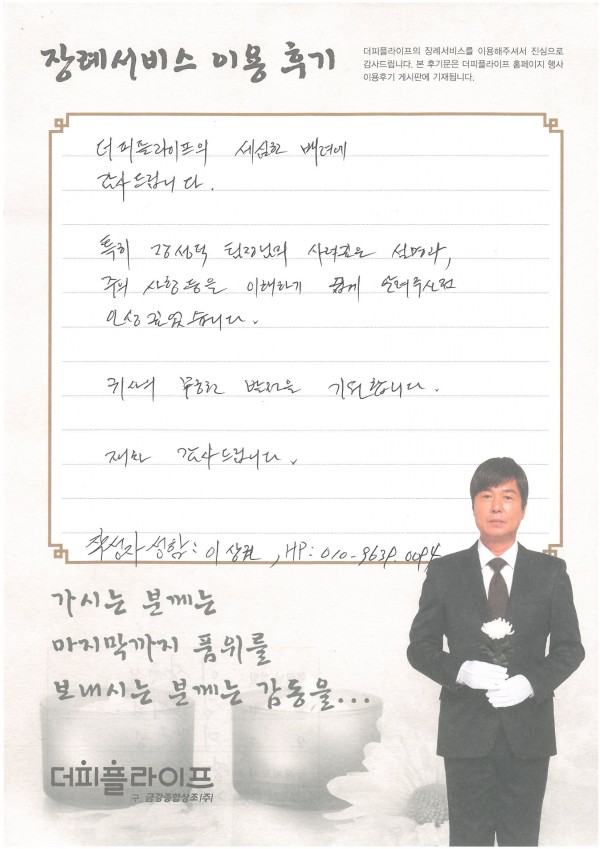 장례서비스 이용 후기
더피플라이프의 장례서비스를 이용해주셔서 진심으로
감사드립니다. 본 후기문은 더피플라이프 홈페이지 행사
이용후기 게시판에 기재됩니다.
더피플라이프의 세심한 배려에
감사드립니다.
특히 강성덕 팀장님의 사려깊은 설명과,
주의 사항 등을 이해하기 쉽게 알려주신점
인상 깊었습니다.
귀사의 무한한 발전을 기원합니다.
재차 감사드립니다.
작성자 성함: 이상권, HP: 010-9639-0094
가시는 분께는
마지막까지 품위를
보내시는 분께는 감동을...
더피플라이프
구. 금강종합상조(주)